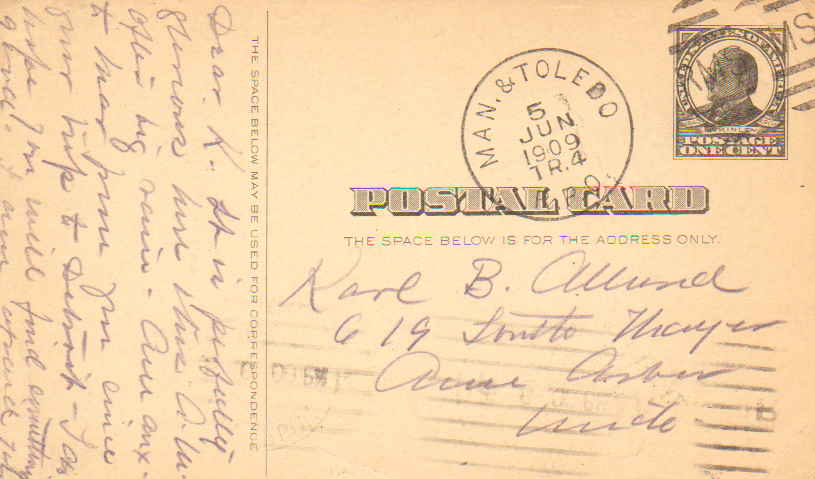 Dear K. It is perfectly
glorious here this A.M.
after big rain - Am anx-
to hear from you since
your trip to Detroit - I do
hope you will find everything
good.
THE SPACE BELOW MAY BE USED FOR CORRESPONDENCE
MAN. & TOLEDO
5
JUN
1909
TR.4
R.P.O.
MCKINLEY
POSTAGE
ONE CENT
POSTAL CARD
THE SPACE BELOW IS FOR THE ADDRESS ONLY.
Karl B.
619 South Thayer
Ann Arbor
Mich